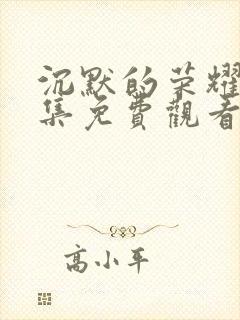 沉默的荣耀
集免費觀看
高小平